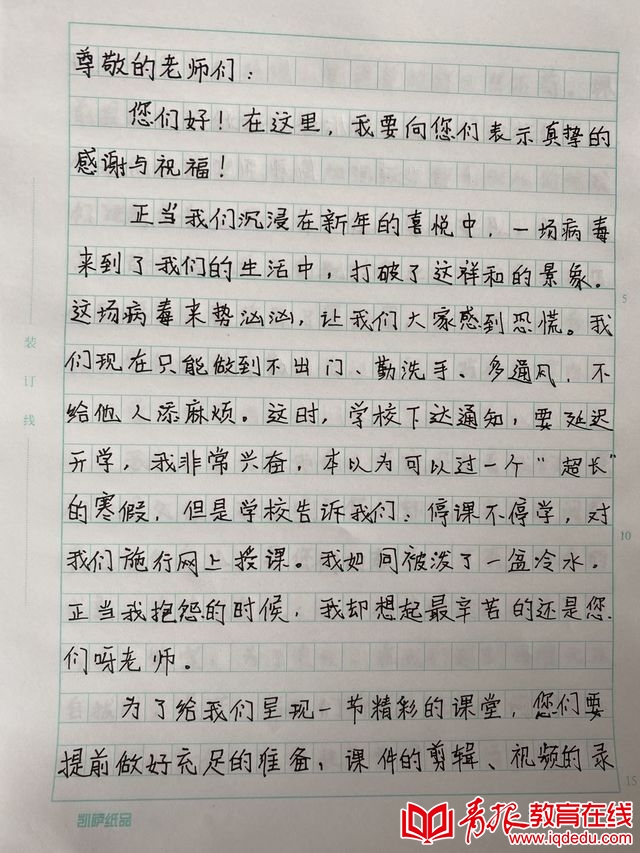 尊敬的老师们：
您们好！在这里，我要向您们表示真挚的
感谢与祝福！
正当我们沉浸在新年的喜悦中，一场病毒
来到了我们的生活中，打破了这祥和的景象。
这场病毒来势汹汹，让我们大家感到恐慌。我
们现在只能做到不出门、勤洗手、多通风，不
给他人添麻烦。这时，学校下达通知，要延迟
开学，我非常兴奋，本以为可以过一个“超长”
的寒假，但是学校告诉我们：停课不停学，对
我们施行网上授课。我如同被泼了一盆冷水。
正当我抱怨的时候，我却想起最辛苦的还是您
们呀老师。
为了给我们呈现一节精彩的课堂，您们要
提前做好充足的准备，课件的剪辑、视频的录
装订线
5
10
15
凯萨纸品
青报教育在线
www.iqdedu.com